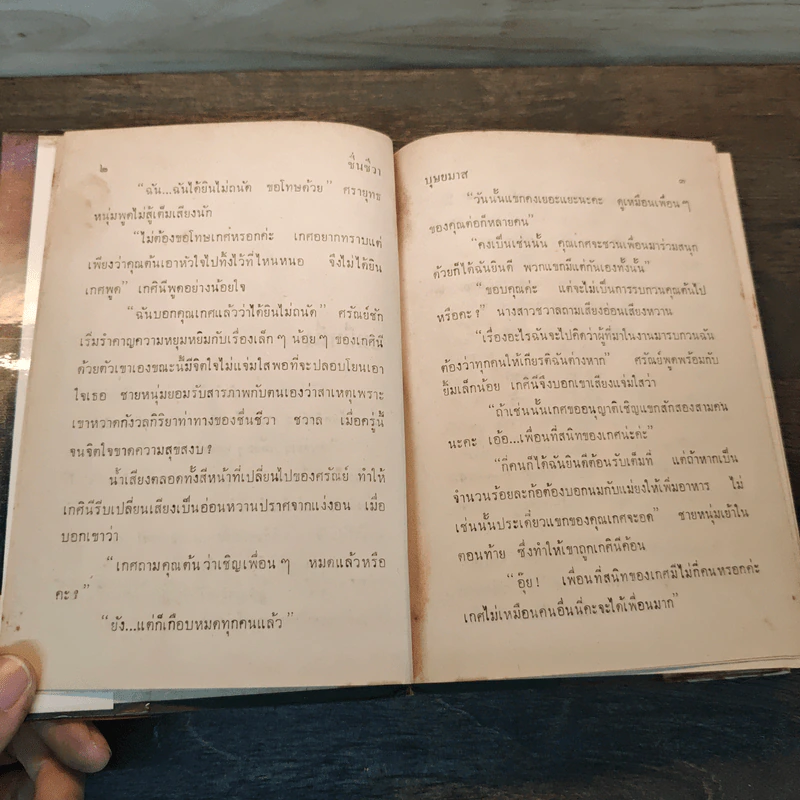 ๒
ชื่นชีวา
“ฉัน...ฉันได้ยินไม่ถนัด ขอโทษด้วย” ศรายุทธ
หนุ่มพูดไม่สู้เต็มเสียงนัก
“ไม่ต้องขอโทษเกศหรอกค่ะ เกศอยากทราบแต่
เพียงว่าคุณต้นเอาหัวใจไปทิ้งไว้ที่ไหนหนอ จึงไม่ได้ยิน
เกศพูด” เกศินีพูดอย่างน้อยใจ
“ฉันบอกคุณเกศแล้วว่าได้ยินไม่ถนัด” ศรัณย์ชัก
เริ่มรำคาญความหยุมหยิมกับเรื่องเล็กๆ น้อยๆ ของเกศินี
ด้วยตัวเขาเองขณะนี้มีจิตใจไม่แจ่มใสพอที่จะปลอบโยนเอา
ใจเธอ ชายหนุ่มยอมรับสารภาพกับตนเองว่าสาเหตุเพราะ
เขาหวาดกังวลกิริยาท่าทางของชื่นชีวา ชวาล เมื่อครู่นี้
จนจิตใจขาดความสุขสงบ?
น้ำเสียงตลอดทั้งสีหน้าที่เปลี่ยนไปของศรัณย์ ทำให้
เกศินีรีบเปลี่ยนเสียงเป็นอ่อนหวานปราศจากแง่งอน เมื่อ
บอกเขาว่า
“เกศถามคุณต้นว่าเชิญเพื่อนๆ หมดแล้วหรือ
คะ?”
“ยัง...แต่ก็เกือบหมดทุกคนแล้ว”
บุษยมาส
๓
“วันนั้นแขกคงเยอะแยะนะคะ ดูเหมือนเพื่อนๆ
ของคุณต่อก็หลายคน”
“คงเป็นเช่นนั้น คุณเกศจะชวนเพื่อนมาร่วมสนุก
ด้วยก็ได้ฉันยินดี พวกแขกมีแต่กันเองทั้งนั้น”
“ขอบคุณค่ะ แต่จะไม่เป็นการรบกวนคุณต้นไป
หรือคะ?” นางสาวชวาลถามเสียงอ่อนเสียงหวาน
“เรื่องอะไรฉันจะไปคิดว่าผู้ที่มาในงานมารบกวนฉัน
ต้องว่าทุกคนให้เกียรติฉันต่างหาก” ศรัณย์พูดพร้อมกับ
ยิ้มเล็กน้อย เกศินีจึงบอกเขาเสียงแจ่มใสว่า
“ถ้าเช่นนั้นเกศขออนุญาติเชิญแขกสักสองสามคน
นะคะ เอ้อ...เพื่อนที่สนิทของเกศน่ะค่ะ”
“กี่คนก็ได้ฉันยินดีต้อนรับเต็มที่ แต่ถ้าหากเป็น
จำนวนร้อยละก้อต้องบอกนมกับแม่ยงให้เพิ่มอาหาร ไม่
เช่นนั้นประเดี๋ยวแขกของคุณเกศจะอด” ชายหนุ่มเย้าใน
ตอนท้าย ซึ่งทำให้เขาถูกเกศินีค้อน
“อุ๊ย! เพื่อนที่สนิทของเกศมีไม่กี่คนหรอกค่ะ
เกศไม่เหมือนคนอื่นนี่คะจะได้เพื่อนมาก”